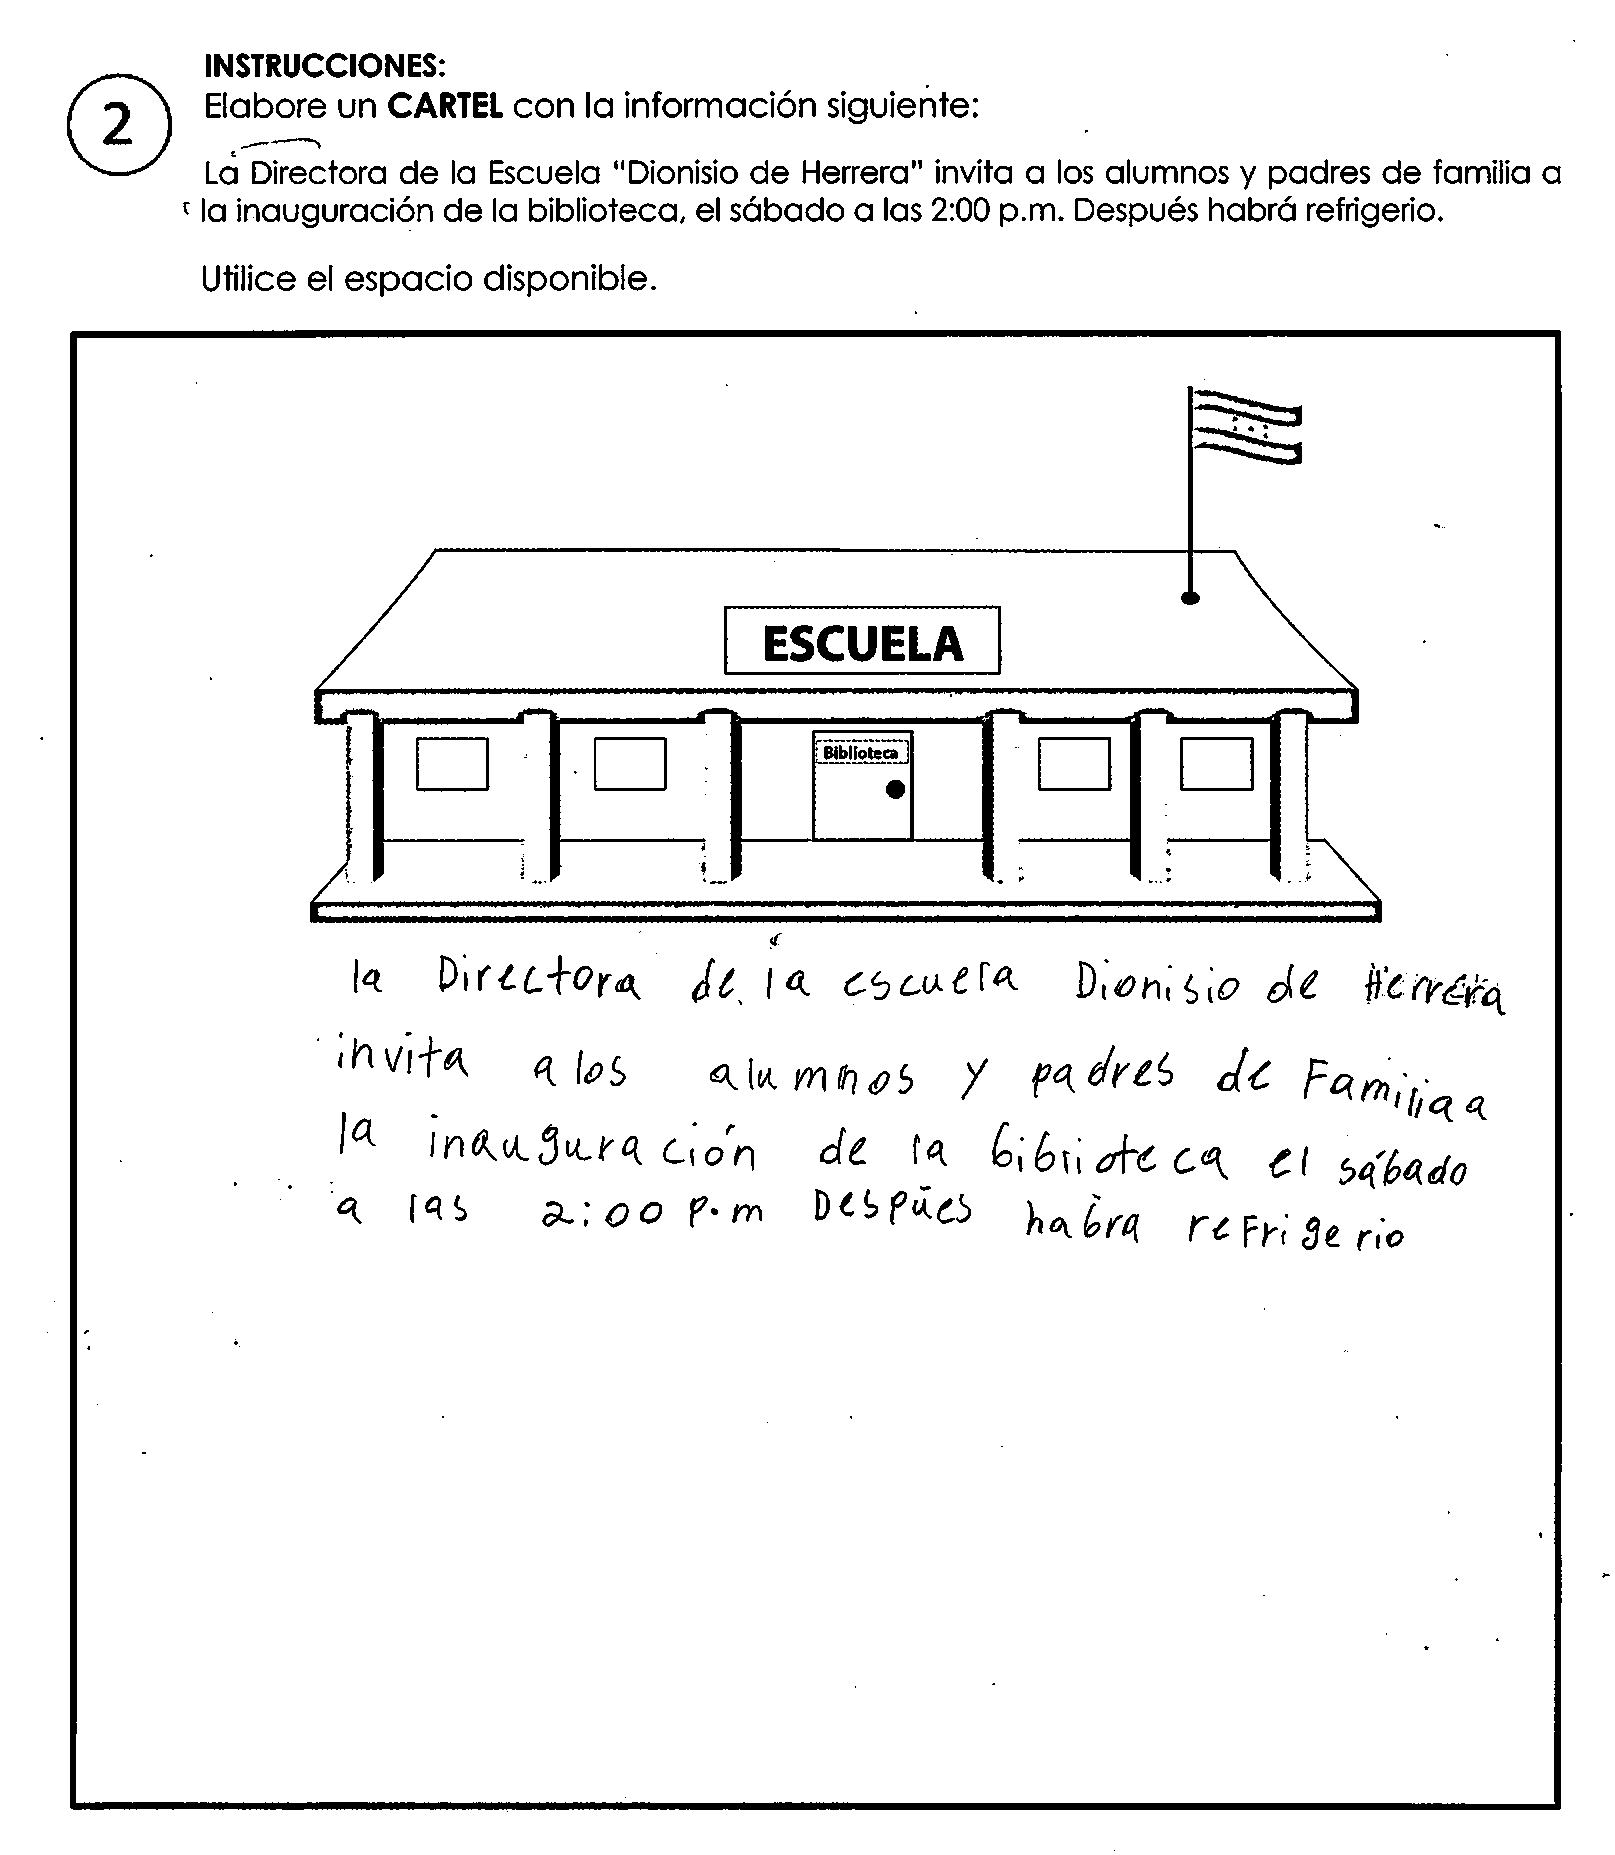 INSTRUCCIONES:
2
Elabore un CARTEL con la información siguiente:
La Directora de la Escuela "Dionisio de Herrera" invita a los alumnos y padres de familia a
la inauguración de la biblioteca, el sábado a las 2:00 p.m. Después habrá refrigerio.
Utilice el espacio disponible.
ESCUELA
Biblioteca
la Directora de la escuela Dionisio de Herrera
invita a los alumnos y padres de Familia a
la inauguración de la biblioteca el sábado
a las 2:00 p.m Despúes habra refrigerio